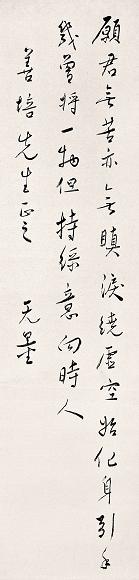 願君無苦亦無瞋淚繞虛空始化身引手
幾曾將一物但持綵意向時人
善培先生正之
无量